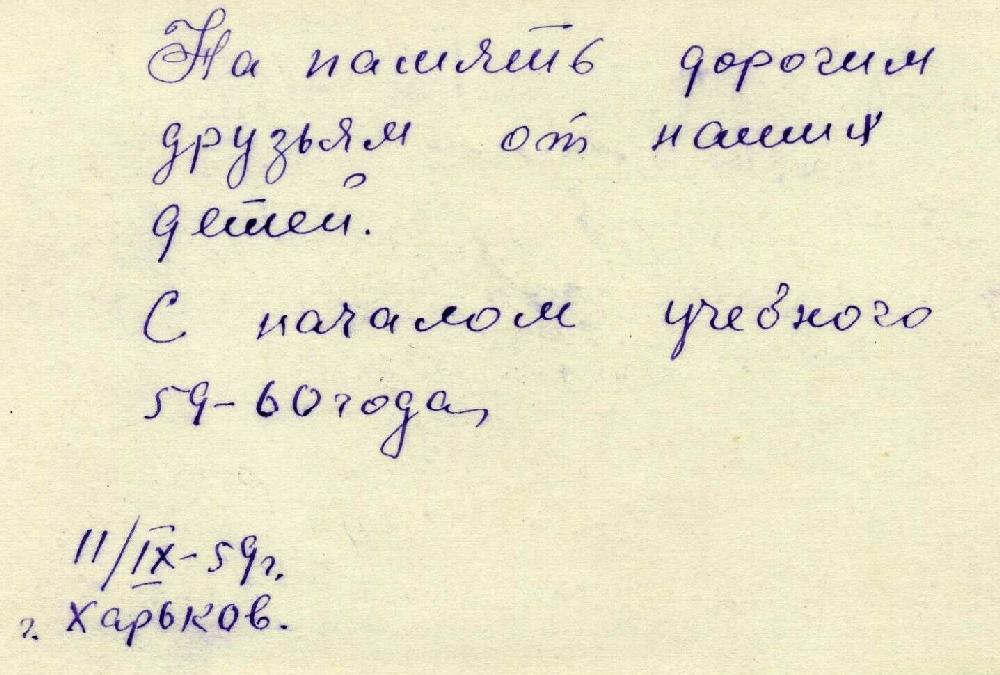 На память дорогим
друзьям от наших
детей.
С началом учебного
59-60 года,
11/IX-59г.
г. Харьков.